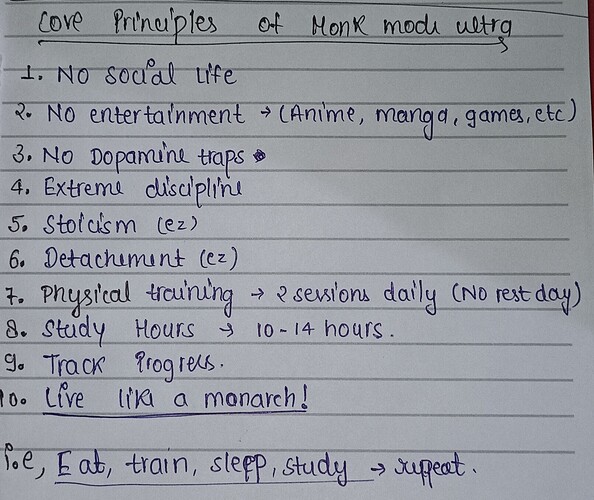 Core Principles of Monk mode ultra
1. No social life
2. No entertainment → (Anime, manga, games, etc)
3. No Dopamine traps
4. Extreme discipline
5. Stoicism (ez)
6. Detachement (ez)
7. Physical training → 2 sessions daily (No rest day)
8. Study Hours → 10-14 hours.
9. Track Progress.
10. Live like a monarch!
i.e, Eat, train, sleep, study → repeat.